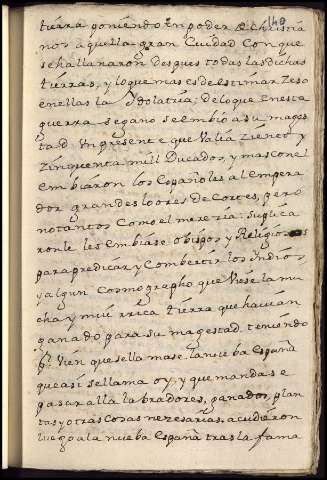 140
tierra poniendo En poder de christia
nos aquella gran Ciudad Con que
se hallanaron despues todas las dichas
tierras, y lo que mas es de estimar Zeso
en ellas la Ydolatria, de lo que en esta
guerra se gano se embio a su mages
tad Un presente que Valia Ziento y
Zinquenta mill Ducados, y mas Con el
embiaron los Españoles al Empera
dor grandes loores de Cortes, pero
no tantos Como el merezia: Suplica
ronle les Embiase obispos y Religiosos
para predicar y Combertir los Indios
y algun Cosmographo que Viese la mu
cha y mui rrica tierra que havian
ganado para su magestad, teniendo
por Vien que se llamase la nueba España
que asi se llama oy, y que mandase
pasar alla labradores, ganados, plan
tas y otras Cosas nezesarias, acudieron
luego a la nueba España tras la fama